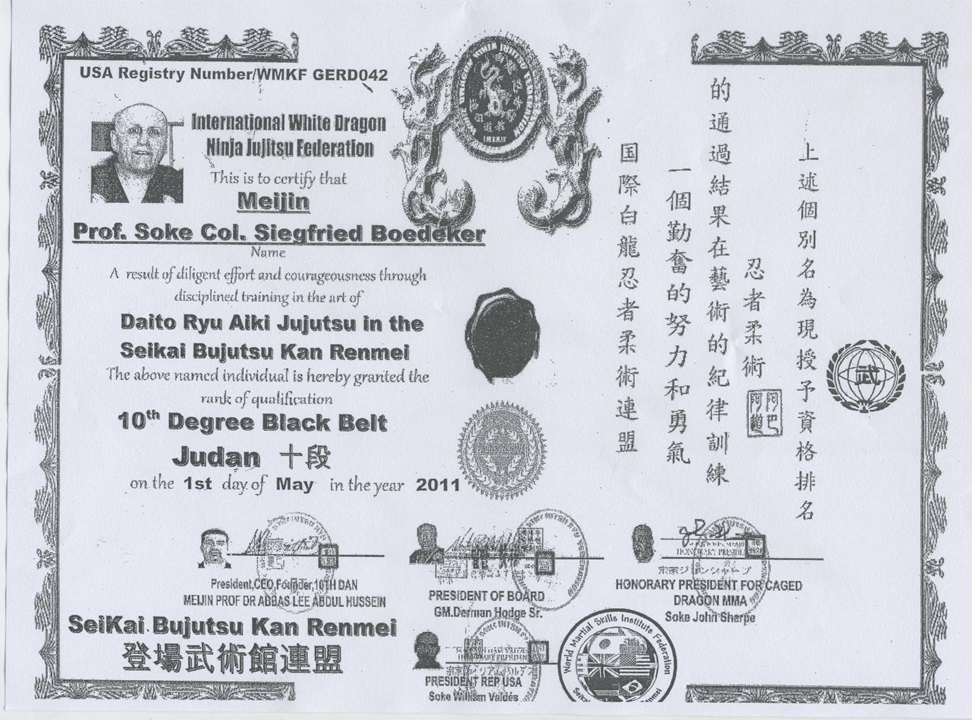 USA Registry Number/WMKF GERD042
International White Dragon
Ninja Jujitsu Federation
This is to certify that
Meijin
Prof. Soke Col. Siegfried Boedeker
Name
A result of diligent effort and courageousness through
disciplined training in the art of
Daito Ryu Aiki Jujutsu in the
Seikai Bujutsu Kan Renmei
The above named individual is hereby granted the
rank of qualification
10th Degree Black Belt
Judan 十段
on the 1st day of May in the year 2011
上述個別名為現授予資格排名
忍者柔術
的通過結果在藝術的紀律訓練
一個勤奮的努力和勇氣
国際白龍忍者柔術連盟
武
President,CEO Founder,10TH DAN
MEIJIN PROF DR ABBAS LEE ABDUL HUSSEIN
PRESIDENT OF BOARD
GM.Derman Hodge Sr.
HONORARY PRESIDENT FOR CAGED
DRAGON MMA
Soke John Sharpe
SeiKai Bujutsu Kan Renmei
登場武術館連盟
PRESIDENT REP USA
Soke William Valdés
World Martial Skills Institute Federation